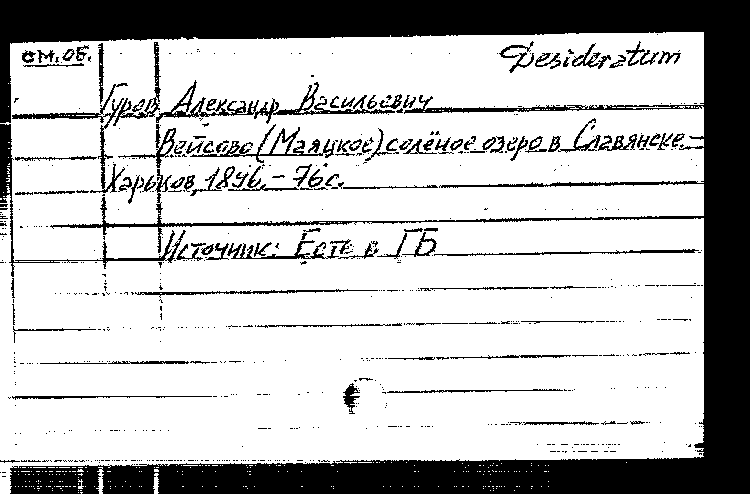 см. об. Desideratum
Гуров Александр Васильевич
Вейсово (Маяцкое) солёное озеро в Славянске.-
Харьков, 1896.- 76с.
Источник: Есть в ГБ